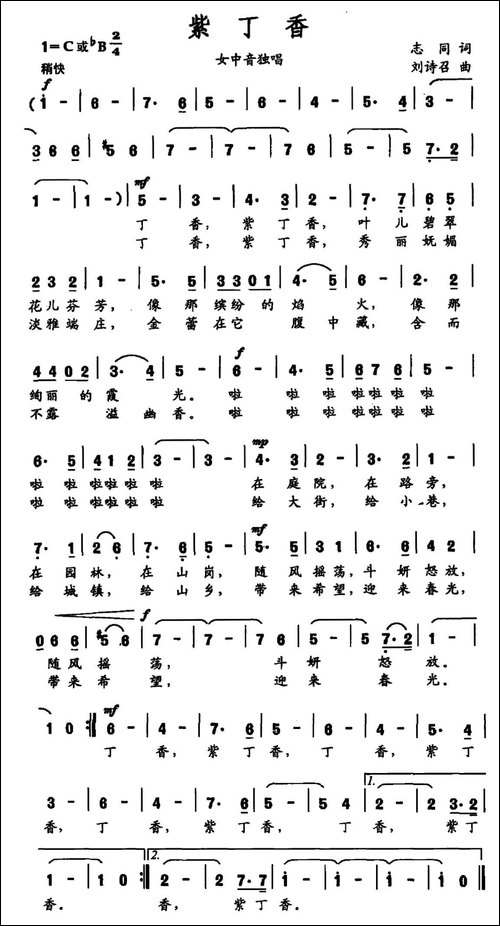 紫丁香
1=C或♭B 2/4
女中音独唱
志同 词
稍快
刘诗召 曲
f
( i - | 6 - | 7· 6 | 5 - | 4· 3 | 2 - | 4· 5 | 5· 4 | 3 - |
3 6 6 | #5 6 | 7 - | 7 - | 7 6 | 5 - | 5 7·2 |
mf
1 - | 1 - ) | 5 - | 3 - | 4· 3 | 2 - | 7· 7 | 6 5 |
丁 香, 紫 丁 香, 叶 儿 碧 翠
丁 香, 紫 丁 香, 秀 丽 妩 媚
2 3 2 | 1 - | 5· 5 | 3 3 0 1 | 4· 5 | 6 - | 2· 2 |
花儿芬 芳, 像 那 缤纷的 焰 火, 像 那
淡雅端 庄, 金 蕾 在它 腹 中 藏, 含 而
f
4 4 0 2 | 3· 4 | 5 - | 6 - | 4· 5 | 6 7 6 | 5 - |
绚丽 的 霞 光。 啦 啦 啦 啦啦啦 啦
不露 溢 幽 香。 啦 啦 啦 啦啦啦 啦
mp
6· 5 | 4 1 2 | 3 - | 3 - | 4· 3 | 2 - | 3· 2 | 1 - |
啦 啦 啦啦啦 啦 在 庭 院, 在 路 旁,
啦 啦 啦啦啦 啦 给 大 街, 给 小 巷,
mf
7· 1 | 2 6 | 7· 6 | 5 - | 5· 5 | 3 1 | 6· 6 | 5 4 |
在 园 林, 在 山 岗, 随 风 摇 荡, 斗 妍 怒 放,
给 城 镇, 给 山 乡, 带 来 希 望, 迎 来 春 光,
f
0 6 6 | #5 6 | 7 - | 7 - | 7 6 | 5 - | 5 7·2 | 1 - |
随风 摇 荡, 斗 妍 怒 放。
带来 希 望, 迎 来 春 光。
mf
1 0 :‖ 6 - | 4 - | 7· 6 | 5 - | 6 - | 4 - | 5· 4 |
丁 香, 紫 丁 香, 丁 香, 紫 丁
1.
3 - | 6 - | 4 - | 7· 6 | 5 - | 5 4 | 2 - | 2 3·2 |
香, 丁 香, 紫 丁 香, 丁 香, 紫丁
2.
1 - | 1 0 :‖ 2 - | 2 7·7 | i - | i - | i - | i 0 ‖
香。 香, 紫 丁 香。